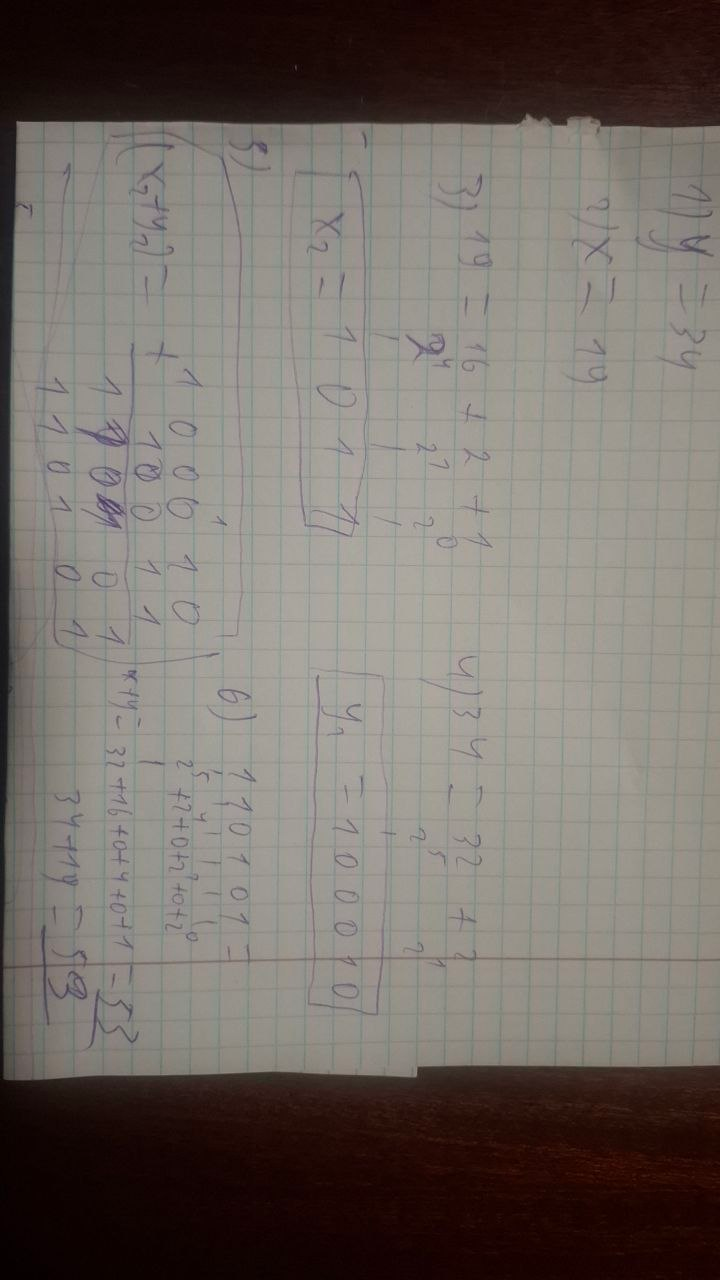 1) y = 34
2) x = 19
3) 19 = 16 + 2 + 1
2⁴ 2¹ 2⁰
x₂ = 1 0 1 1
4) 34 = 32 + 2
2⁵ 2¹
y₂ = 1 0 0 0 1 0
5)
1 0 0 0 1 0
(x₂+y₂) = + 1 0 0 1 1
1 1 0 1 0 1
6) 110101 =
2⁵+2⁴+0+2²+0+2⁰
x+y= 32+16+0+4+0+1=53
34+19=53